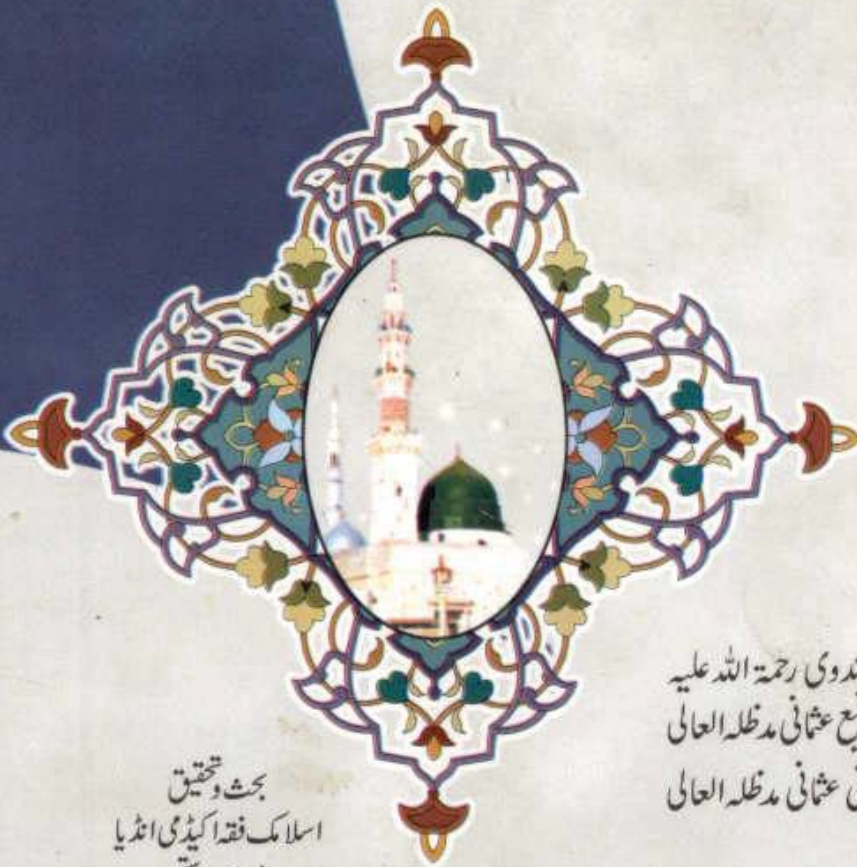 ندوی رحمۃ اللہ علیہ
عثمانی مدظلہ العالی
عثمانی مدظلہ العالی
بحث و تحقیق
اسلامک فقہ اکیڈمی انڈیا